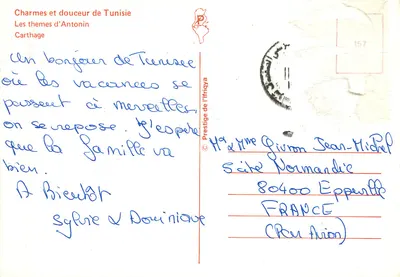 Charmes et douceur de Tunisie
Les themes d'Antonin
Carthage
Un bonjour de Tunisie
où les vacances se
passent à merveilles,
on se repose. J'espère
que la famille va
bien.
A Bientôt
Sylvie & Dominique
© Prestige de l'Ifriqya
Mr & Mme Givron Jean-Michel
Scité Normandie
80400 Eppeville
FRANCE
(Par Avion)